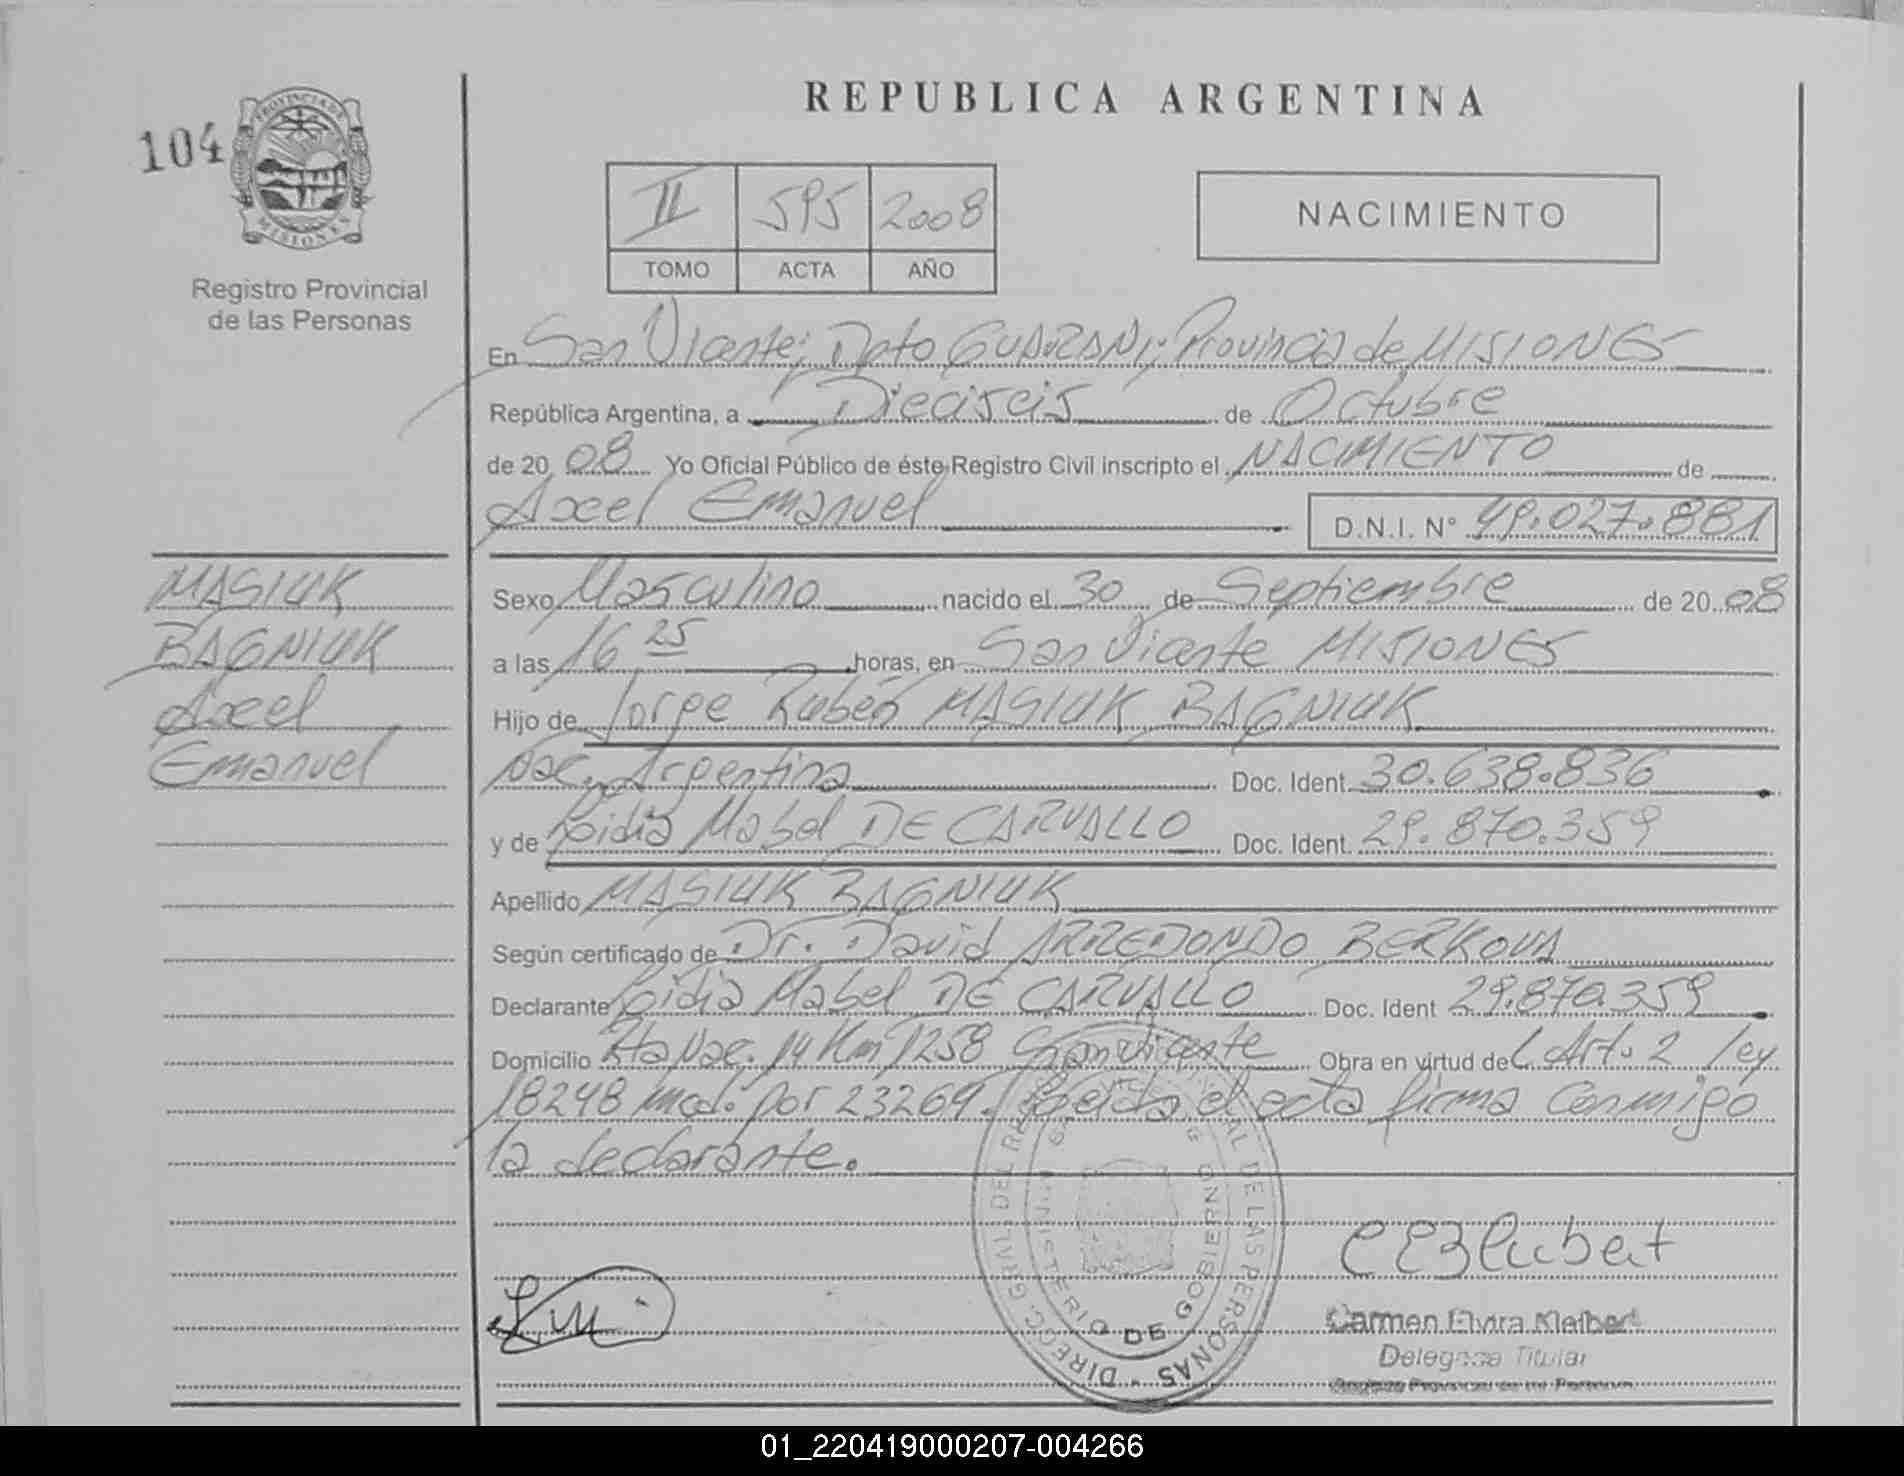 REPUBLICA ARGENTINA
104
PROVINCIA DE
MISIONES
Registro Provincial
de las Personas
II 595 2008
TOMO ACTA AÑO
NACIMIENTO
En San Vicente; Dpto GUARANI; Provincia de MISIONES
República Argentina, a Dieciseis de Octubre
de 20 08 Yo Oficial Público de éste Registro Civil inscripto el NACIMIENTO de
Axel Emanuel D.N.I. N° 49.027.881
MASIUK
BAGNIUK
Axel
Emanuel
Sexo Masculino nacido el 30 de Septiembre de 20 08
a las 16 25 horas, en San Vicente MISIONES
Hijo de Jorge Rubén MASIUK BAGNIUK
Nac. Argentina Doc. Ident. 30.638.836
y de Leidia Mabel DE CARVALLO Doc. Ident. 29.870.359
Apellido MASIUK BAGNIUK
Según certificado de Dr. David ARREDONDO BERKOVA
Declarante Leidia Mabel DE CARVALLO Doc. Ident 29.870.359
Domicilio Rta Nac. 14 Km 1258 San Vicente Obra en virtud del Art. 2 ley
18248 mod. por 23269. Leida el acta firma conmigo
la declarante.
DIREC. GRAL. DEL REG. PROVINCIAL DE LAS PERSONAS
MINISTERIO DE GOBIERNO
Carmen Elvira Kleibert
Delegada Titular
Registro Provincial de las Personas
01_220419000207-004266